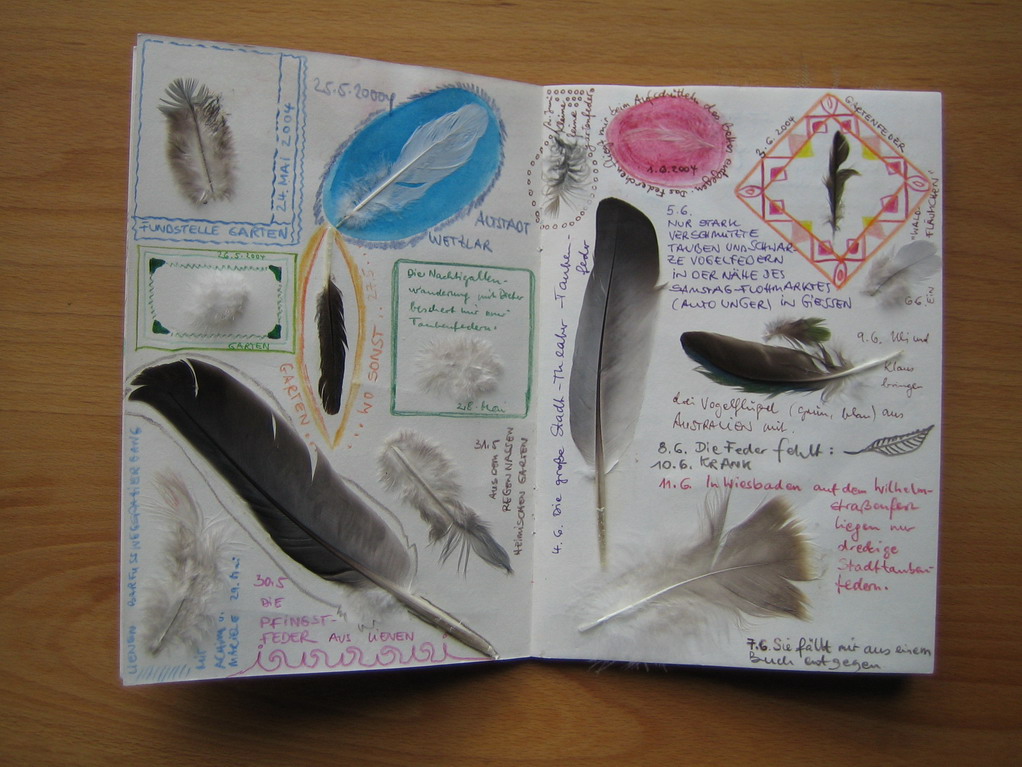 24. MAI 2004
FUNDSTELLE GARTEN
25.5.20004
ALTSTADT
WETZLAR
26.5.2004
GARTEN
GARTEN...
...WO SONST...27.5...
Die Nachtigallen-
wanderung mit
beschert mir nur
Taubenfedern.
28. Mai
31.5
AUS DEM
REGENNASSEN
HEIMISCHEN GARTEN
UENEN BARFUSS
MIT
ACHIM U.
MARIELE 29. Mai
30.5
DIE
PFINGST-
FEDER AUS UENEN
kleine
feine
fliegt mir beim Aufschütteln des Betten entgegen. Das Federchen
1.6.2004
3.6.2004
GARTENFEDER
4.6. Die große Stadt-Theater-Tauben-
feder
5.6.
NUR STARK
VERSCHMUTZTE
TAUBEN UND SCHWAR-
ZE VOGELFEDERN
IN DER NÄHE DES
SAMSTAG-FLOHMARKTES
(AUTO UNGER) IN GIESSEN
6.6 EIN
"WALD-
FLÄUSCHCHEN"
9.6. Uli und
Klaus
bringen
drei Vogelflügel (grün, blau) aus
AUSTRALIEN mit.
8.6. Die Feder fehlt:
10.6. KRANK
11.6. In Wiesbaden auf dem Wilhelm-
straßenfest
liegen nur
dreckige
Stadttauben-
federn.
7.6. Sie fällt mir aus einem
Buch entgegen